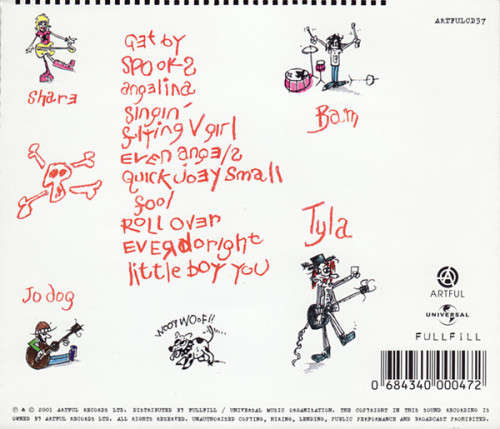 ARTFULCD37
Get by
SPOOKS
angelina
Singin'
flying V girl
EVEN angels
QUICK JOEY Small
fool
ROLL OVER
EVER do right
little boy you
Share
Bam
Tyla
Jo dog
WOOF WOOF!!
ARTFUL
UNIVERSAL
FULLFILL
0 684340 000472
℗ & © 2001 ARTFUL RECORDS LTD. DISTRIBUTED BY FULLFILL / UNIVERSAL MUSIC ORGANISATION. THE COPYRIGHT IN THIS SOUND RECORDING IS
OWNED BY ARTFUL RECORDS LTD. ALL RIGHTS RESERVED. UNAUTHORISED COPYING, HIRING, LENDING, PUBLIC PERFORMANCE AND BROADCAST PROHIBITED.